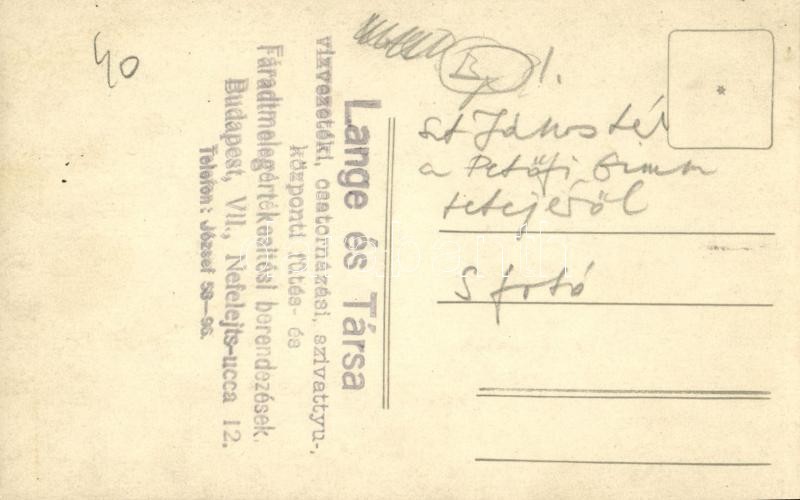 40
Lange és Társa
vizvezetéki, csatornázási, szivattyu-,
központi fűtés- és
Fáradtmelegértékesitési berendezések.
Budapest, VII., Nefelejts-ucca 12.
Telefon: József 58—96.
Bp 1.
szt János tér
a Petőfi
tetejéről
5 fotó